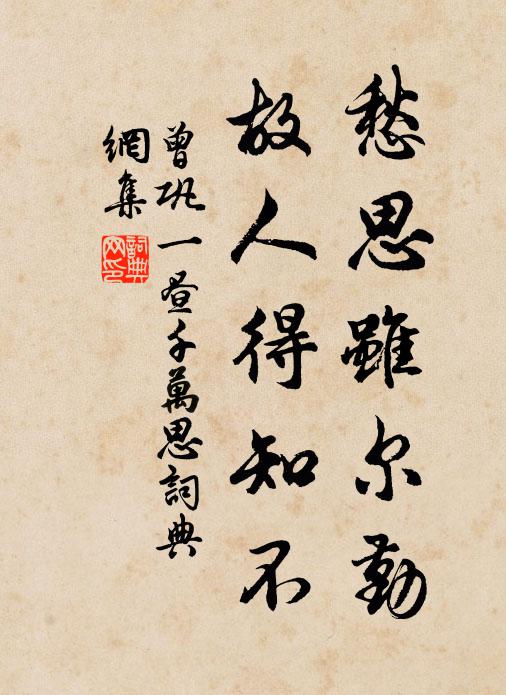 愁思雖尔勤
故人得知不
曾巩一昼千萬思詞典
網集
詞典
网印